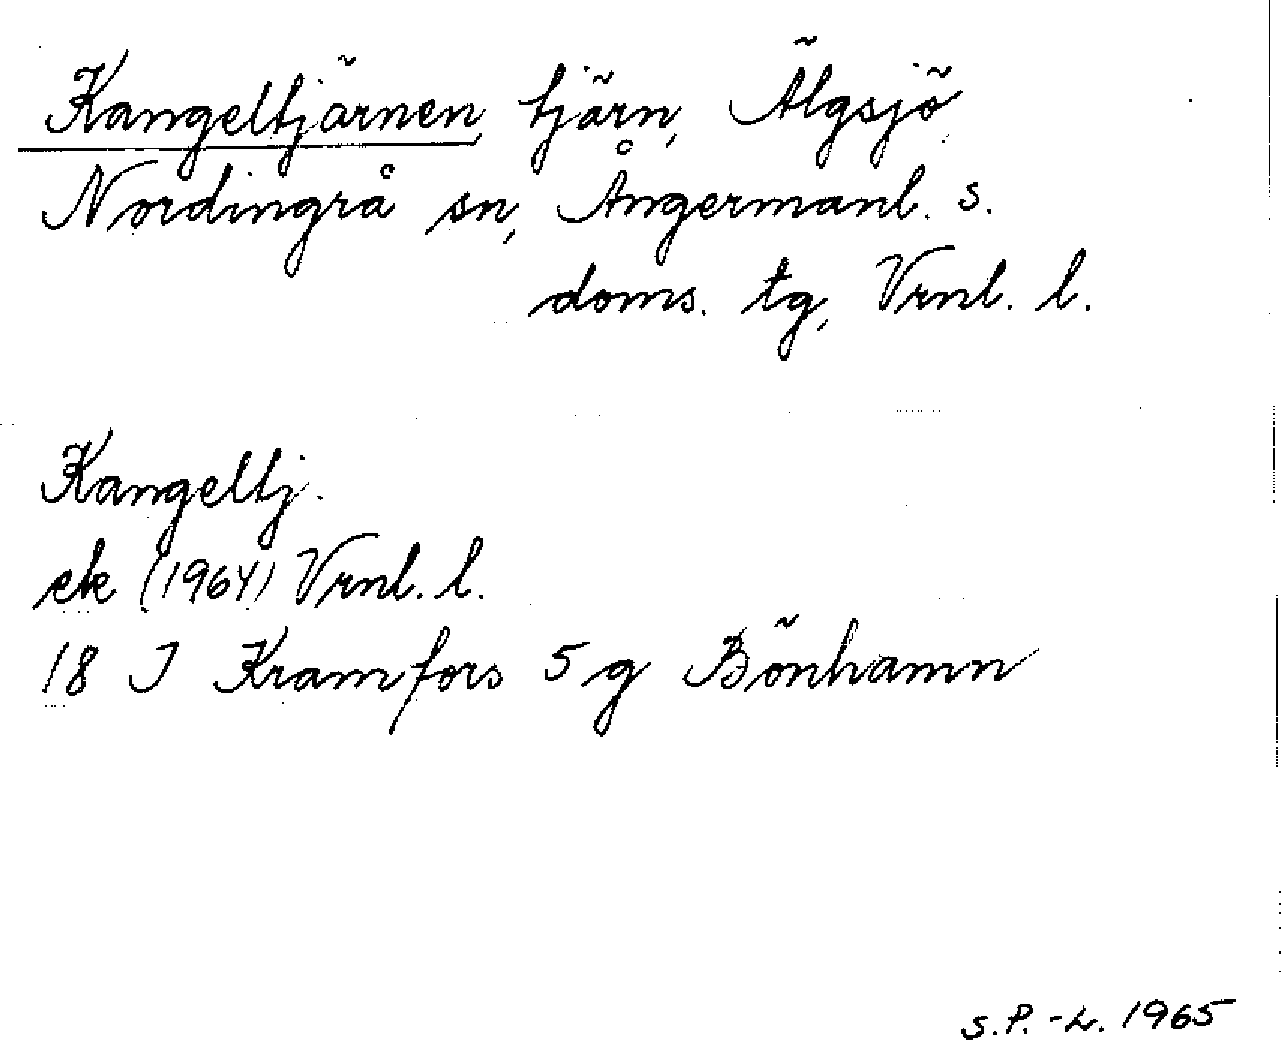 Kangeltjärnen, tjärn, Älgsjö,
Nordingrå sn, Ångermanl. s.
doms. tg, Vrnl. l.
Kangeltj.
ek (1964) Vrnl. l.
18 J Kramfors 5 g Bönhamn
S.P.-L. 1965